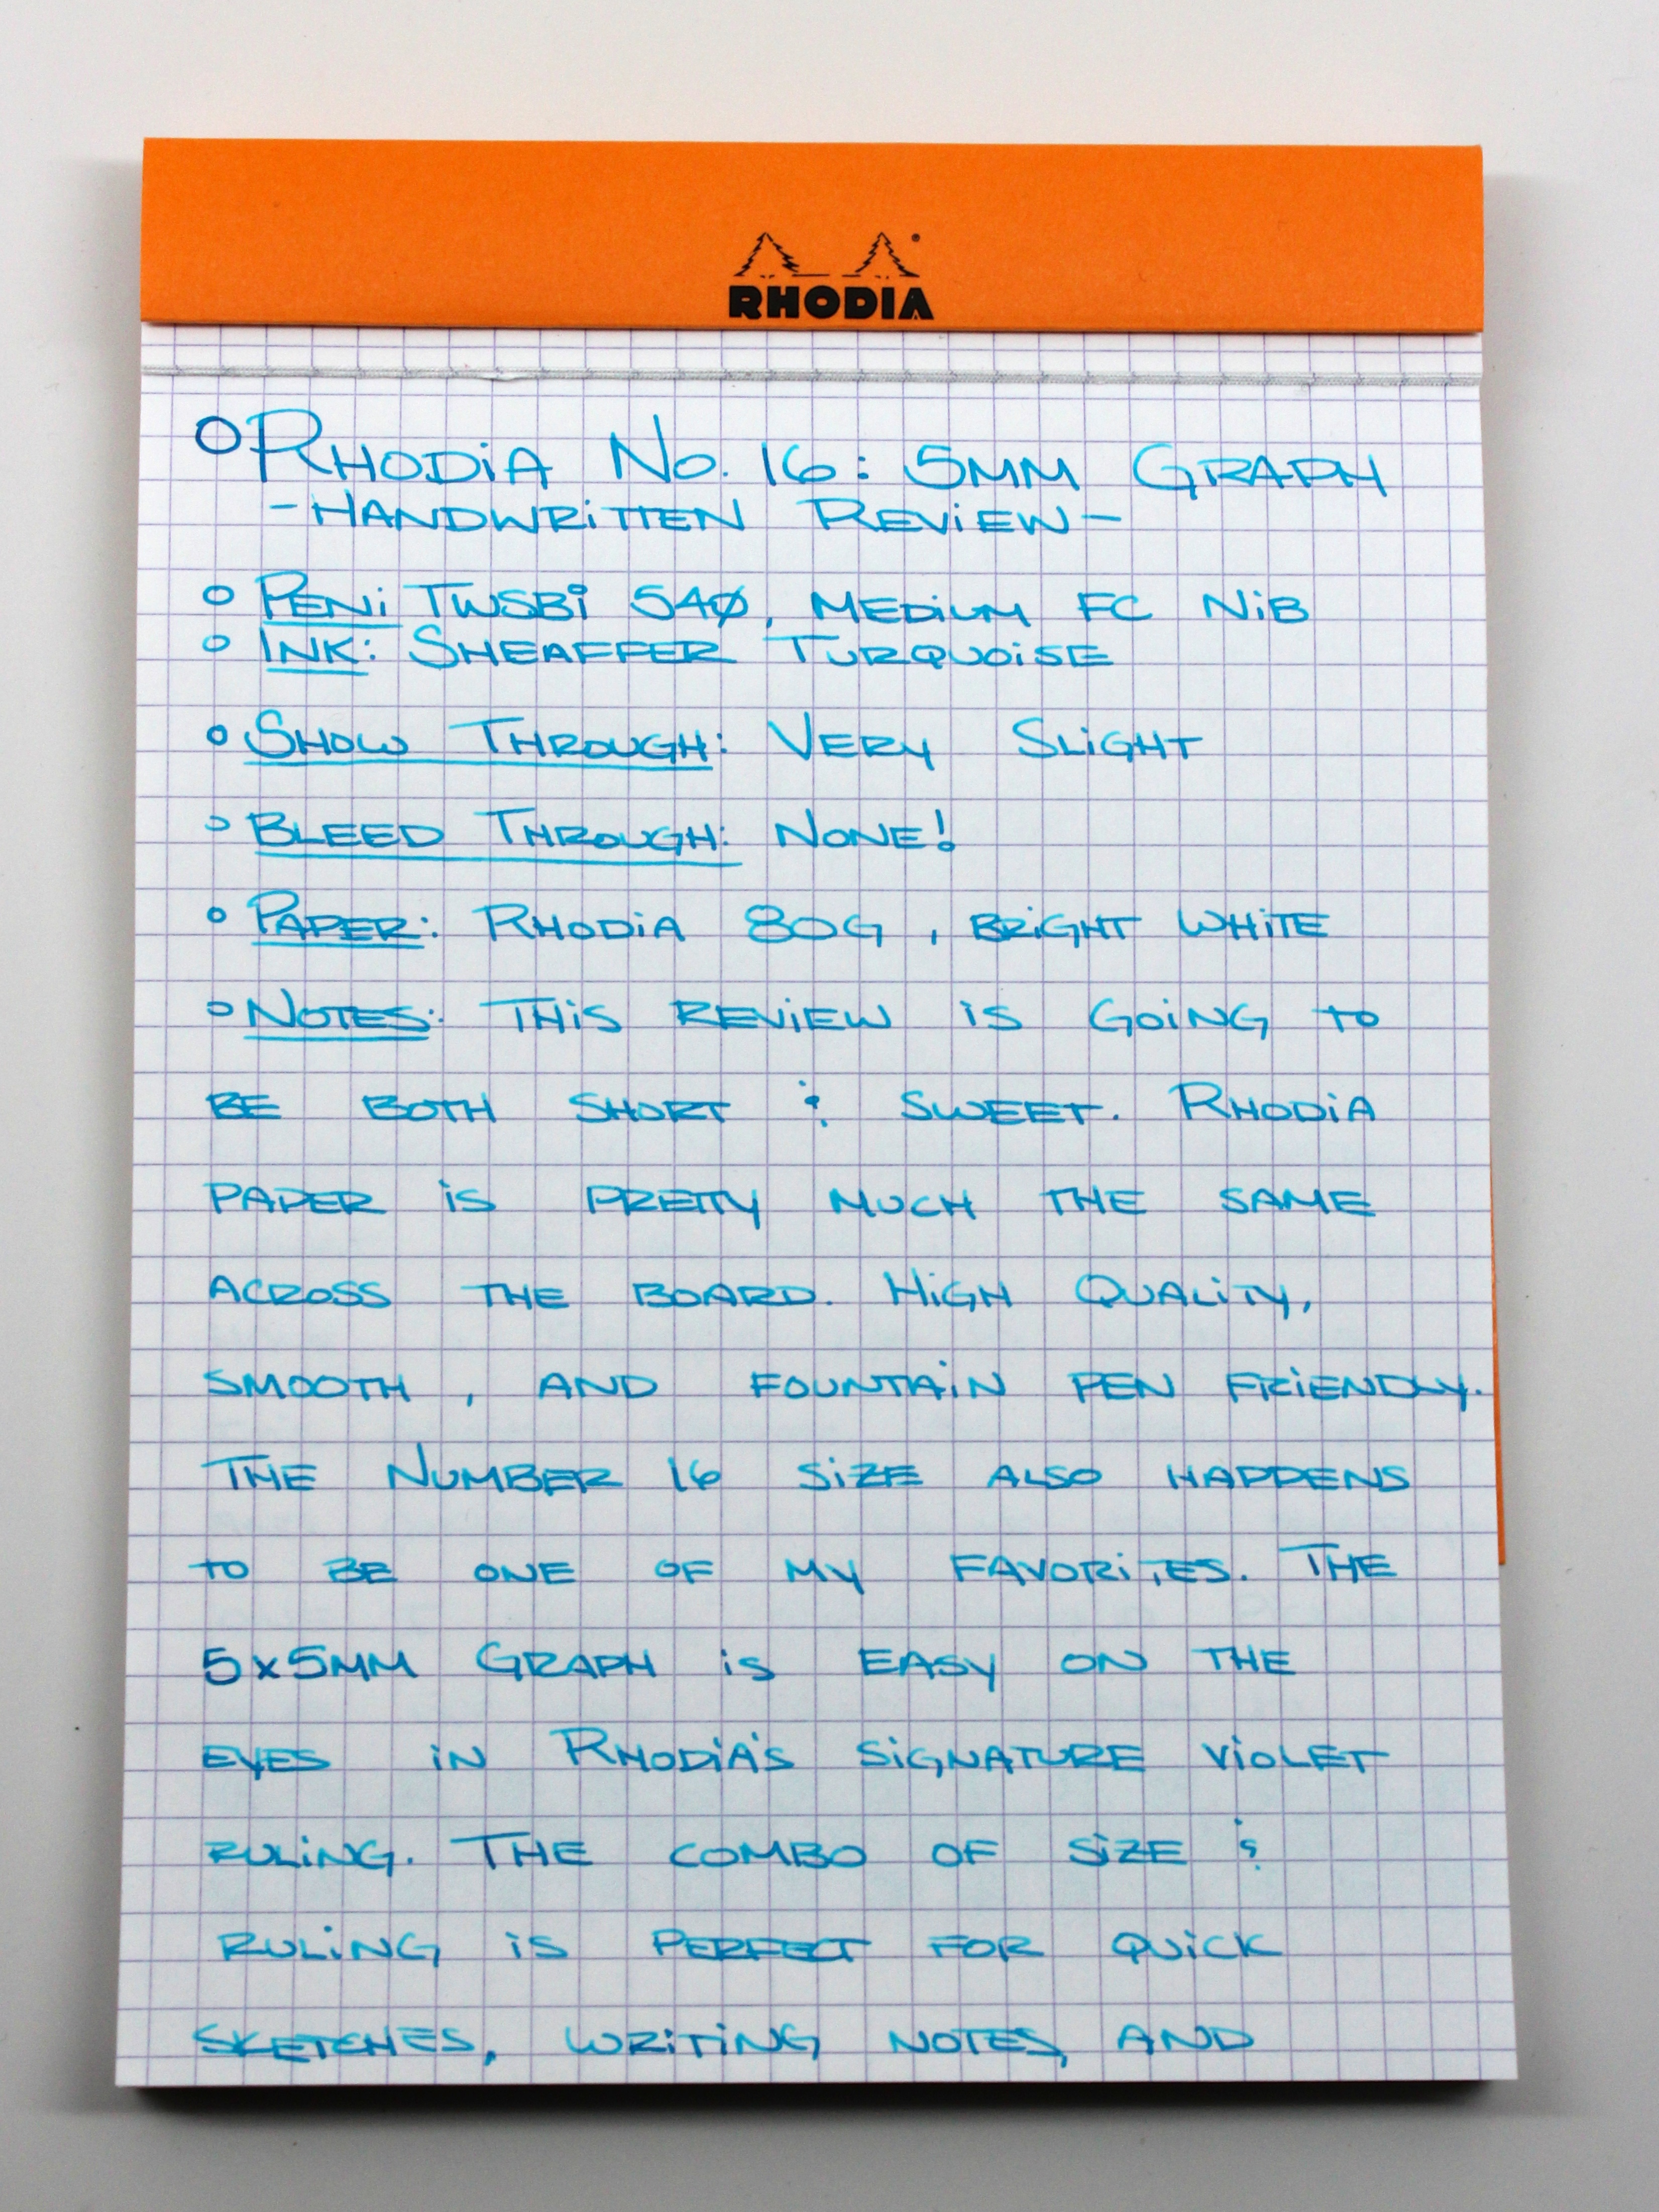 RHODIA
RHODiA No. 16: 5MM GRAPH
-HANDWRiTTEN REViEW-
PEN: TWSBi 540, MEDiUM FC NiB
INK: SHEAFFER TURQUOiSE
SHOW THROUGH: VERY SLiGHT
BLEED THROUGH: NONE!
PAPER: RHODiA 80G, BRiGHT WHiTE
NOTES: THiS REViEW iS GOiNG TO
BE BOTH SHORT & SWEET. RHODiA
PAPER iS PRETTY MUCH THE SAME
ACROSS THE BOARD. HiGH QUALiTY,
SMOOTH, AND FOUNTAiN PEN FRiENDLY.
THE NUMBER 16 SiZE ALSO HAPPENS
TO BE ONE OF MY FAVORiTES. THE
5x5MM GRAPH iS EASY ON THE
EYES iN RHODiA'S SiGNATURE ViOLET
RULiNG. THE COMBO OF SiZE &
RULiNG iS PERFECT FOR QUiCK
SKETCHES, WRiTiNG NOTES, AND